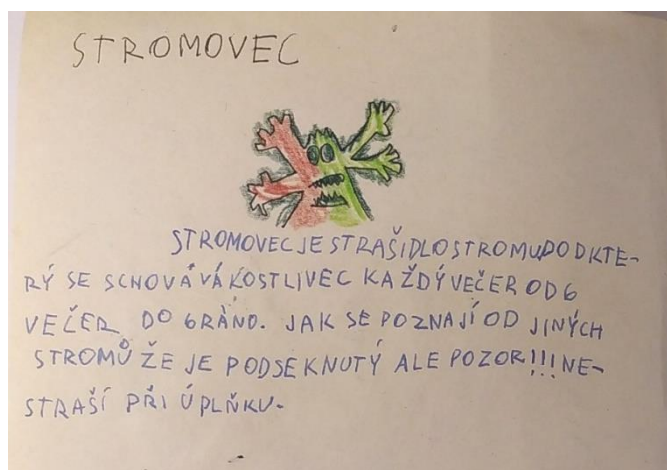 STROMOVEC
STROMOVEC JE STRAŠIDLO STROMU POD KTE-
RÝ SE SCHOVÁVÁ KOSTLIVEC KAŽDÝ VEČER OD 6
VEČER DO 6 RÁNO. JAK SE POZNAJÍ OD JINÝCH
STROMŮ ŽE JE PODSEKNUTÝ ALE POZOR!!! NE-
STRAŠÍ PŘI ÚPLŇKU.